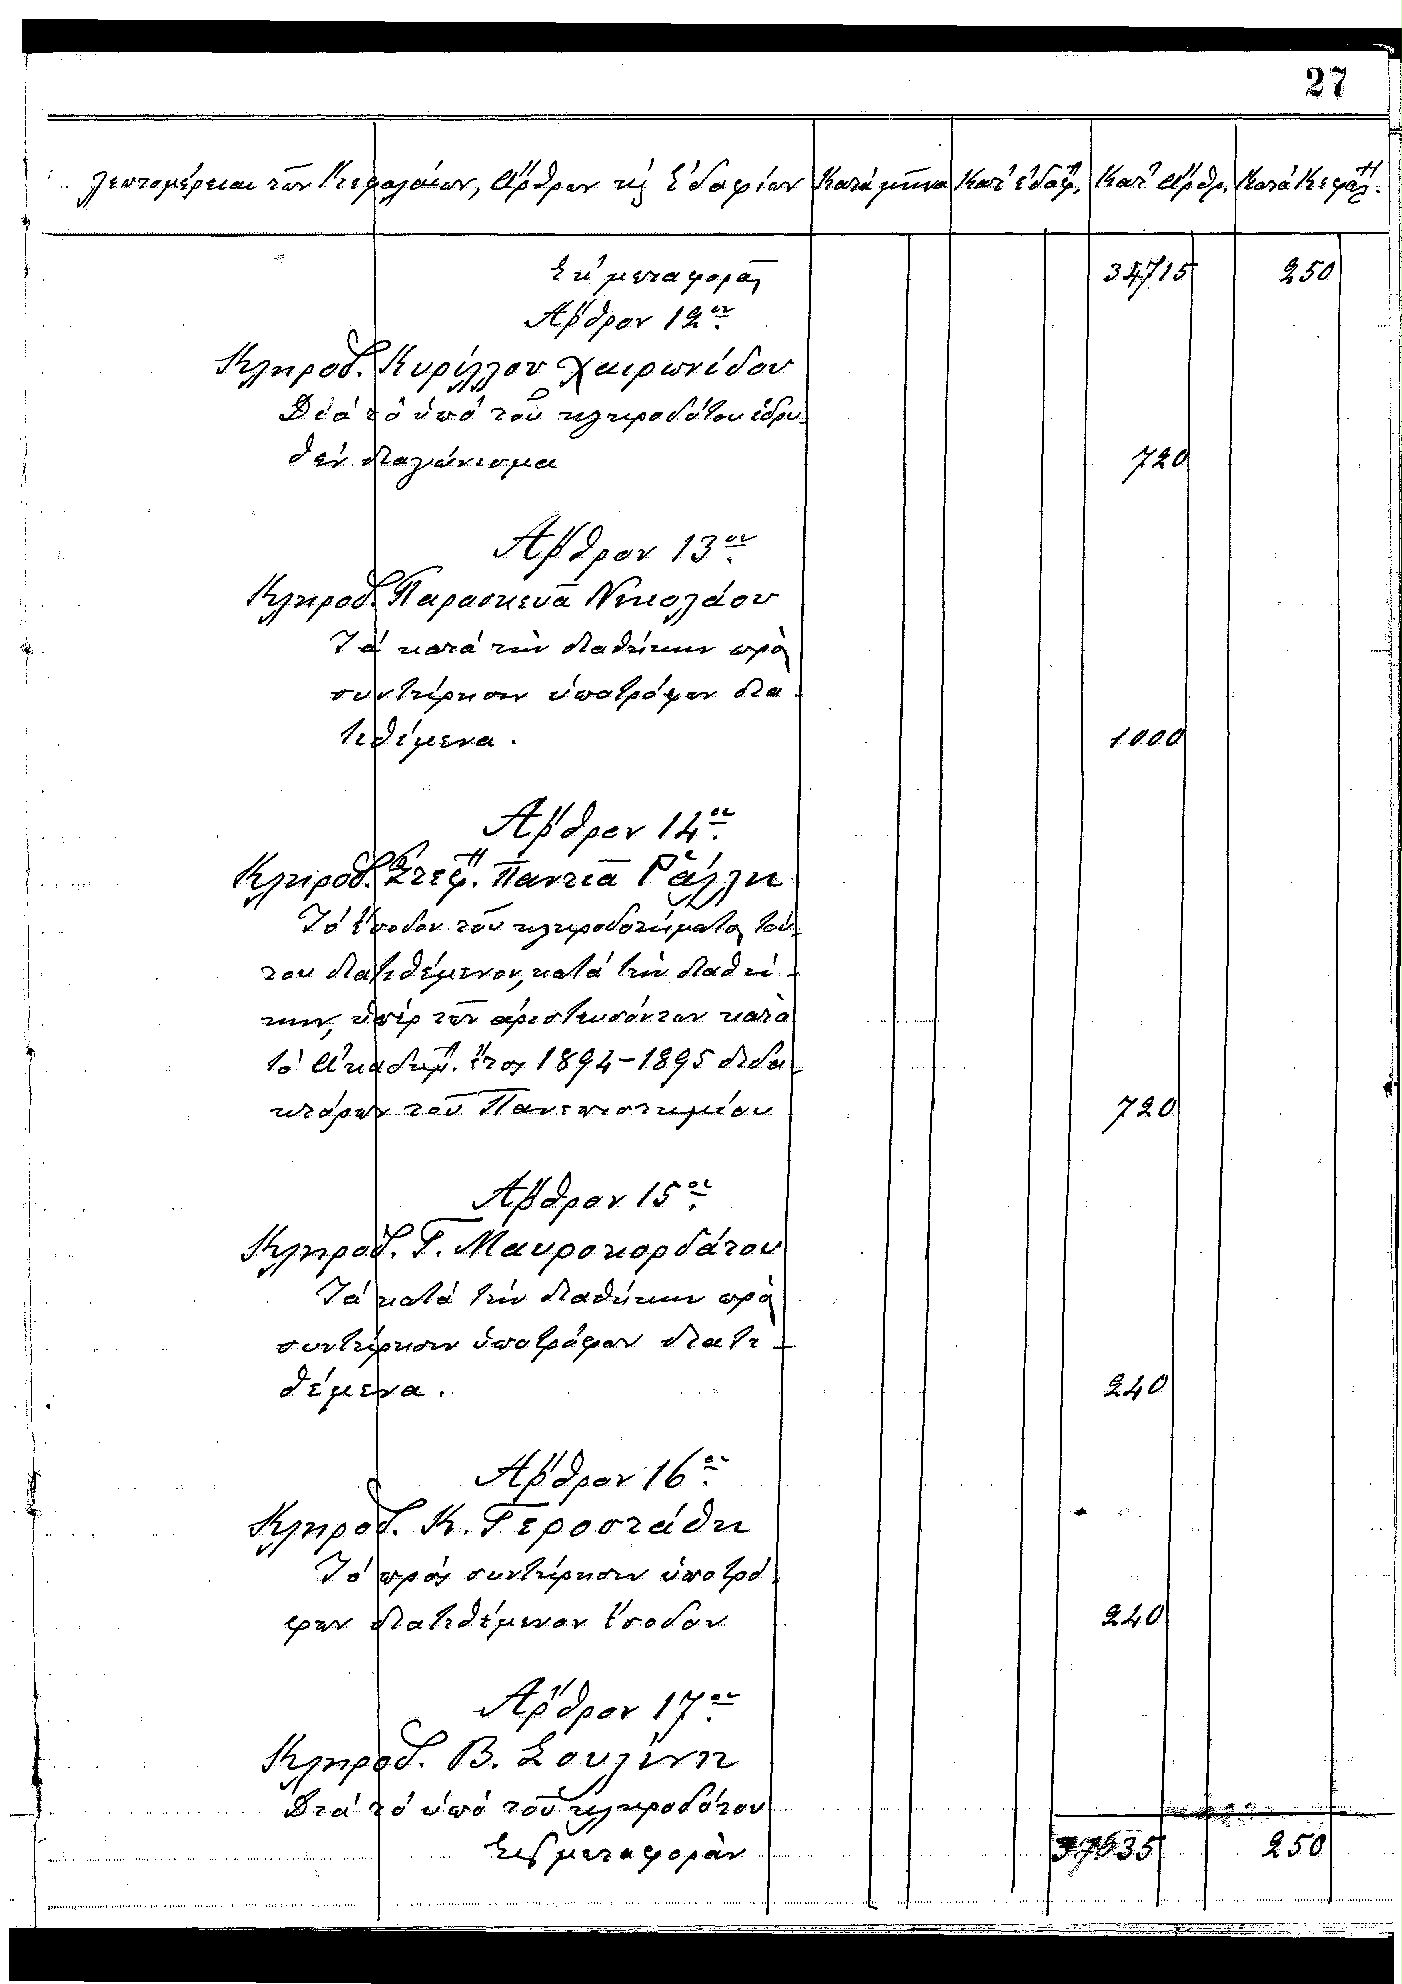 27
Λεπτομέρειαι τῶν Κεφαλαίων, Ἄρθρων κς Ἐδαφίων Κατὰ μῆνα Κατ' ἐδάφ. Κατ' Ἄρθρ. Κατὰ Κεφάλ.
Ἐκ μεταφορᾶς 34715 250
Ἄρθρον 12ον
Κληροδ. Κυρίλλου Χαιρωνίδου
Διὰ τὸ ὑπὸ τοῦ κληροδότου ἱδρυ-
θὲν διαγώνισμα 720
Ἄρθρον 13ον
Κληροδ. Παρασκευᾶ Νικολάου
Τὰ κατὰ τὴν διαθήκην πρὸς
συντήρησιν ὑποτρόφων δια-
τιθέμενα. 1000
Ἄρθρον 14ον
Κληροδ. Στεφ. Παντιᾶ Ῥάλλη
Τὸ ἔσοδον τοῦ κληροδοτήματος τού-
του διατιθέμενον, κατὰ τὴν διαθή-
κην, ὑπὲρ τῶν ἀριστευσάντων κατὰ
τὸ Ἀκαδημ. ἔτος 1894-1895 διδα-
κτόρων τοῦ Πανεπιστημίου 720
Ἄρθρον 15ον
Κληροδ. Γ. Μαυροκορδάτου
Τὰ κατὰ τὴν διαθήκην πρὸς
συντήρησιν ὑποτρόφων διατι-
θέμενα. 240
Ἄρθρον 16ον
Κληροδ. Κ. Γεροστάθη
Τὸ πρὸς συντήρησιν ὑποτρό-
φων διατιθέμενον ἔσοδον 240
Ἄρθρον 17ον
Κληροδ. Β. Σουλίνη
Διὰ τὸ ὑπὸ τοῦ κληροδότου
Εἰς μεταφορὰν 37635 250